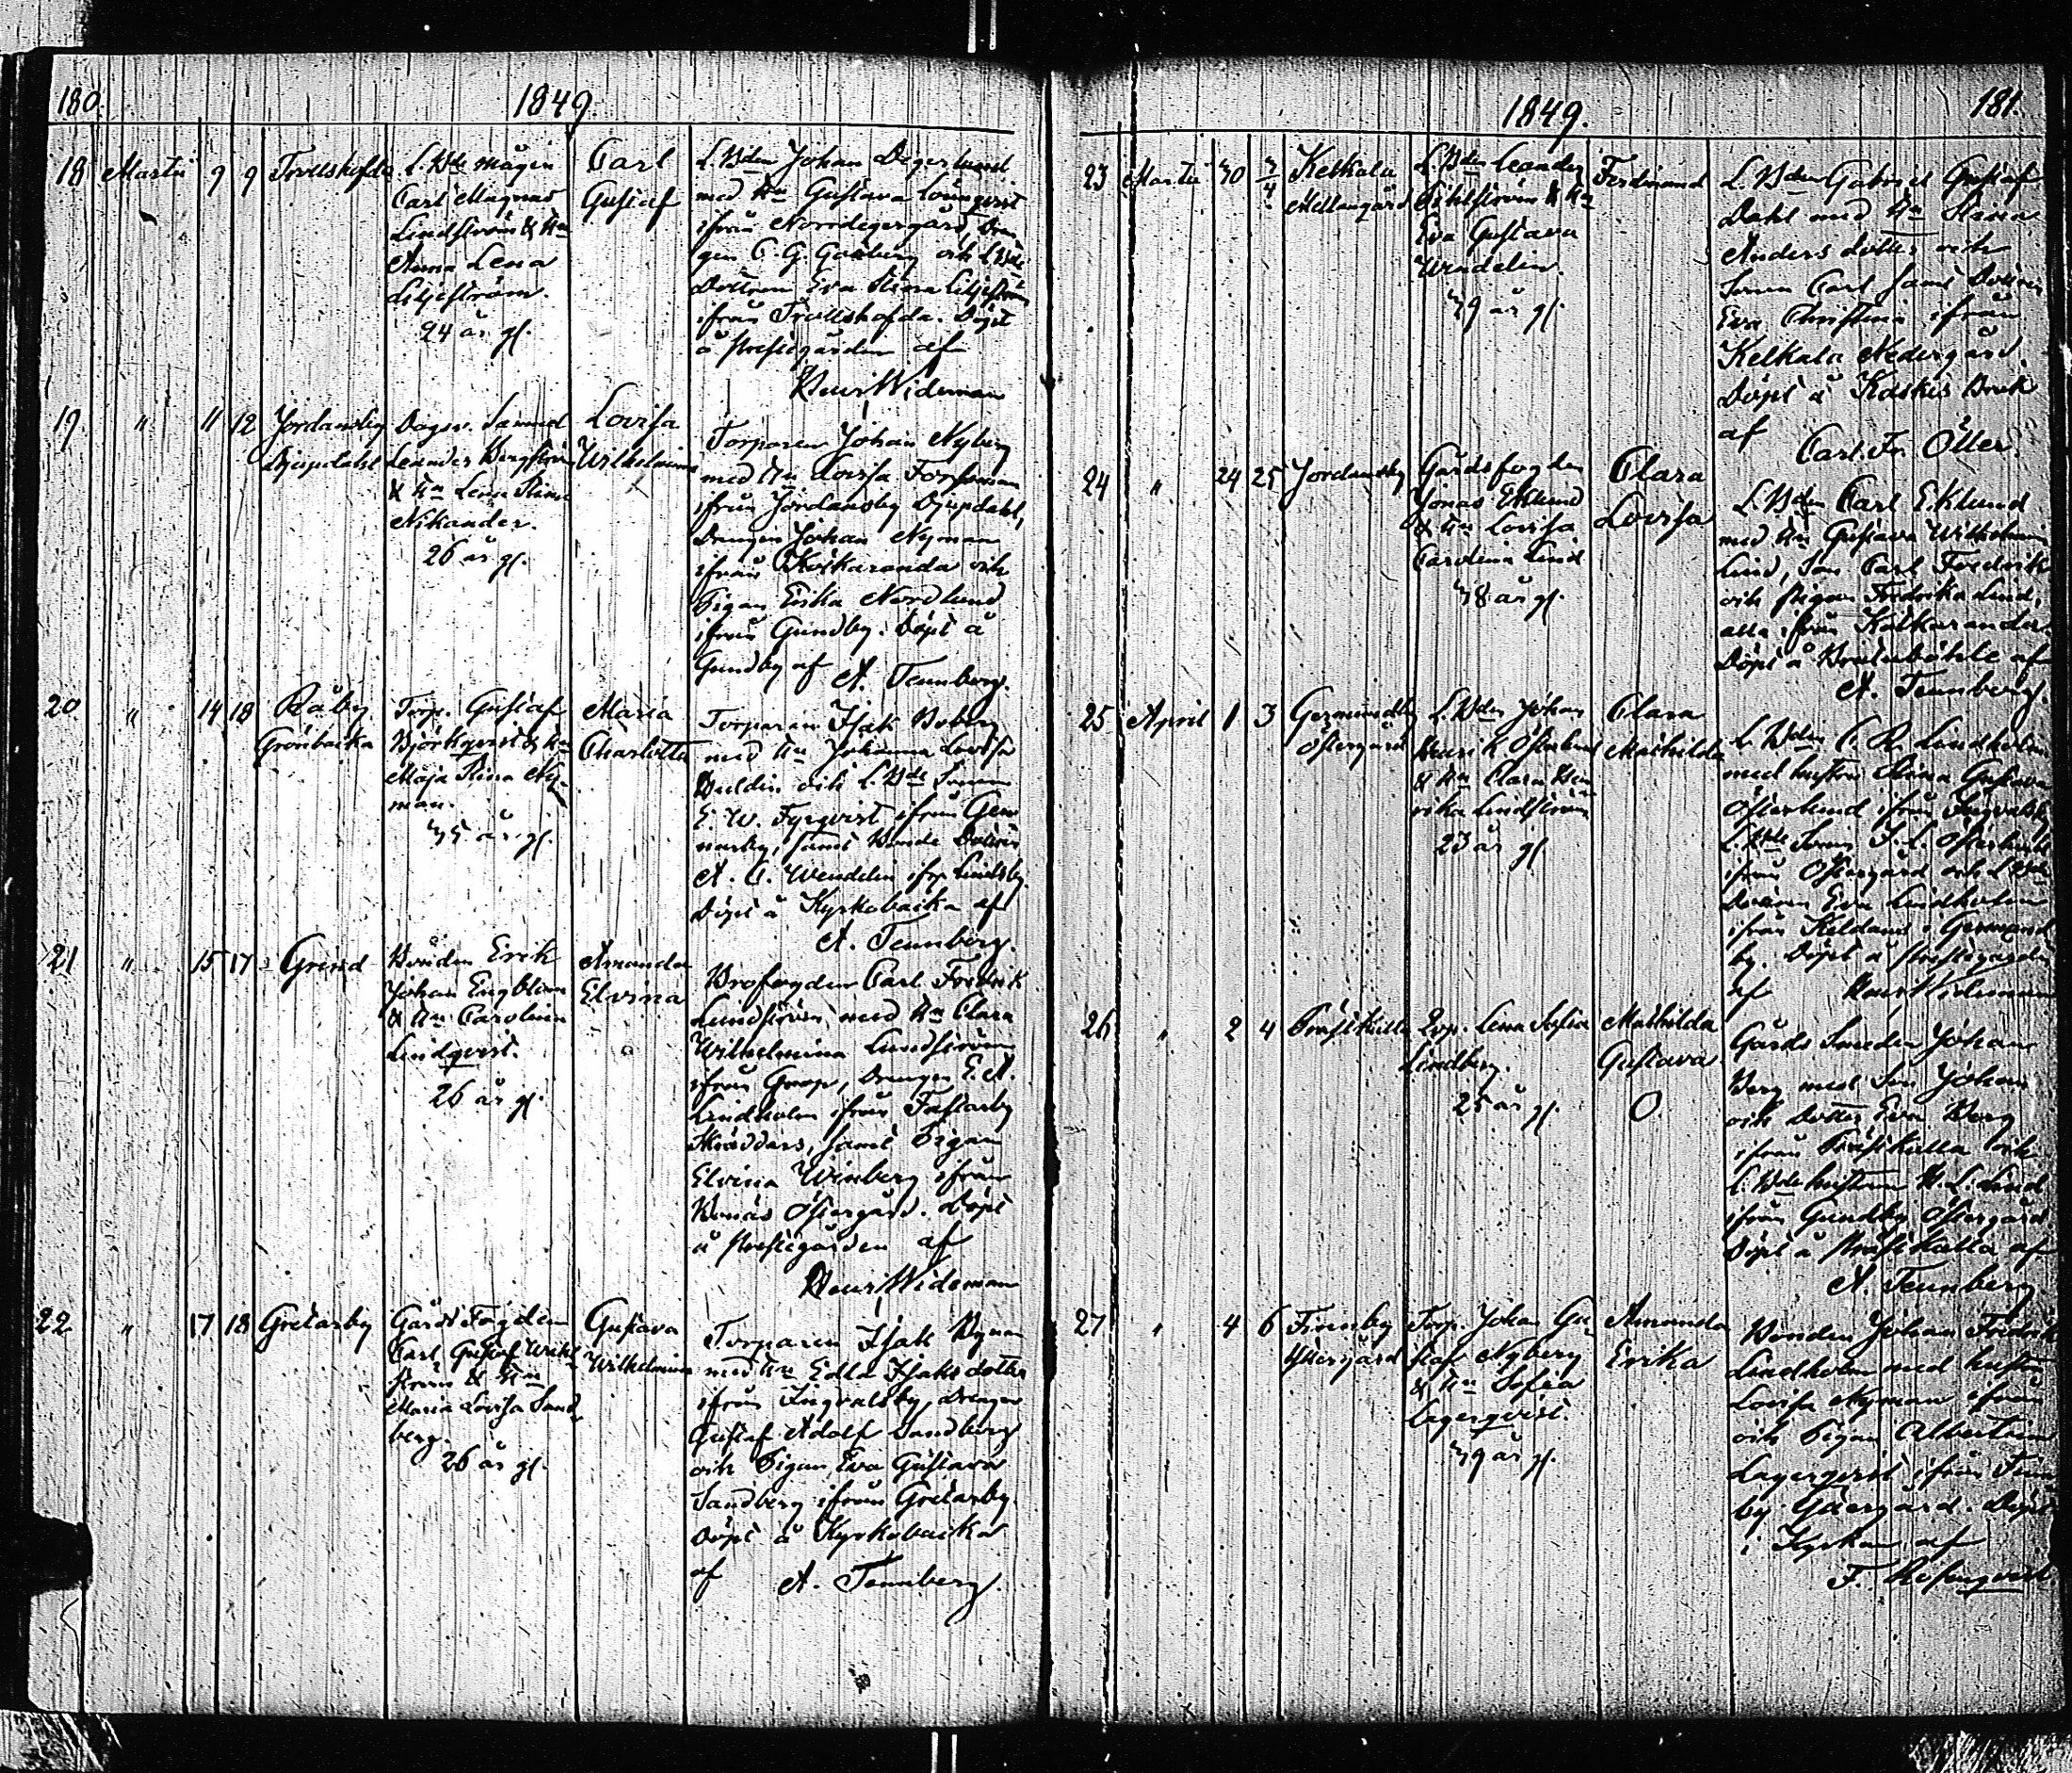 180.
1849.
18 Martii 9 9 Trollshofda
L. Bde mågen
Carl Magnus
Lindström & Hu
Anna Lena
Liljeström.
24 år gl.
Carl
Gustaf
L. Bden Johan Degerlund
med Hu Gustava Lönnqvist
ifrån Norrdegergård, Drän
gen C. G. Godberg och L Bde
Dottren Eva Stina Liljeström
ifrån Trollshofda. Döpt
å Prestegården af
Henr Wideman
19 " 11 12 Jordansby
Djupdahl
Dagsv. Samuel
Leander Bergström
& Hu Lena Stina
Nikander.
26 år gl.
Lovisa
Wilhelmina
Torparen Johan Nyberg
med Hu Lovisa Forsman
ifrån Jordansby Djupdahl,
Drengen Johan Nyman
ifrån Koskaranda och
Pigan Erika Nordlund
ifrån Gundby. Döpt å
Gundby af
A. Tennberg.
20 " 14 18 Råby
Grönbacka
Torp. Gustaf
Björkqvist & Hu
Maja Stina Ny-
man.
35 år gl.
Maria
Charlotta
Torparen Isak Boberg
med Hu Johanna Lovisa
Huldin och L. Bde Sonen
E. W. Fyrqvist ifrån Gen
narby, samt Bonde Dottren
A. U. Wendelin ifr. Lindsby.
Döpt å Kyrkobacka af
A. Tennberg.
21 " 15 17 Grind
Bonden Erik
Johan Engblom
& Hu Carolina
Lindqvist.
26 år gl.
Amanda
Elvina
Brofogden Carl Fredrik
Lundström med Hu Clara
Wilhelmina Lundström
ifrån Grop, Drengen E. A.
Lindholm ifrån Fastarby
Skräddars, samt Pigan
Elvina Winberg ifrån
Bonäs Östergård. Döpt
å Prestegården af
Henr Wideman
22 " 17 18 Gretarby
Gårds Fogden
Carl Gustaf Wikl
ström & Hu
Maria Lovisa Sand
berg.
26 år gl.
Gustava
Wilhelmina
Torparen Isak Byman
med Hu Edla Isaksdotter
ifrån Ingvalsby, Drengen
Gustaf Adolf Sandberg
och Pigan Eva Gustava
Sandberg ifrån Gretarby.
Döpt å Kyrkobacka
af A. Tennberg.
1849.
181.
23 Martii 30 3/4 Kelkala
Mellangård
L Bden Leander
Pihlström & Hu
Eva Gustava
Wendelin.
39 år gl.
Ferdinand
L. Bden Gabriel Gustaf
Dahl med Hu Stina
Anders dotter och
Sonen Carl samt Dottren
Eva Christina ifrån
Kelkala Nedergård.
Döpt å Koskis Bruk
af
Carl Fr. Öller.
24 " 24 25 Jordansby
Gårdsfogden
Jonas Eklund
& Hu Lovisa
Carolina Lind
38 år gl.
Clara
Lovisa
L. Bden Carl Eklund
med Hu Gustava Wilhelmina
Lind, Son Carl Fredrik
och Pigan Fredrika Lind,
alla ifrån Koskaranda.
Döpt å Brödtorp af
A. Tennberg.
25 April 1 3 Germundby
Östergård
L. Bden Johan
Henrik Österlund
& Hu Clara Hen
rika Lindström
23 år gl.
Clara
Mathilda
L. Bden C. R. Lindholm
med hustru Stina Gustava
Österlund ifrån Ingvalsby
L. Bde Sonen J. L. Österlund
ifrån Östergård och L Bde
Dottren Eva Lindholm
ifrån Keldans i Germund
by. Döpt å Prestegården
af Henr Wideman
26 " 2 4 Prästkulla
Lena Sofia
Lindberg.
25 år gl.
Mathilda
Gustava
O
Gårds Smeden Johan
Berg med Son Johan
och dotter Eva Berg
ifrån Prästkulla och
L. Bde hustrun H. L. Lind
ifrån Gundby Östergård
Döpt å Prästkulla af
A. Tennberg
27 " 4 6 Finnby
Yttergård
Torp. Johan Gu
staf Nyberg
& Hu Sofia
Lagerqvist.
39 år gl.
Amanda
Erika
Bonden Johan Fredrik
Lindholm med hustru
Lovisa Nyman ifrån
och Pigan Albertina
Lagerqvist ifrån Finn
by Yttergård. Döpt
i Kyrkan af
F. Rosenqvist